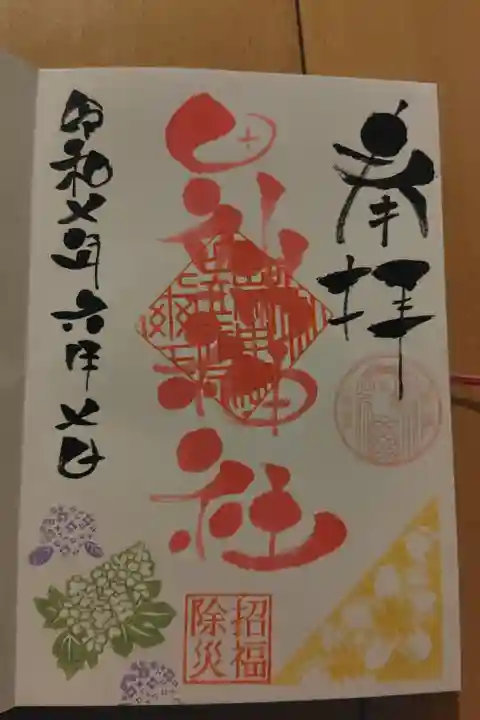 奉拝
神社
令和七年六月七日
招福
除災